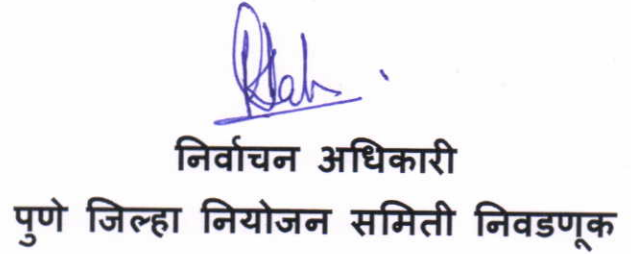 निर्वाचन अधिकारी
पुणे जिल्हा नियोजन समिती निवडणूक